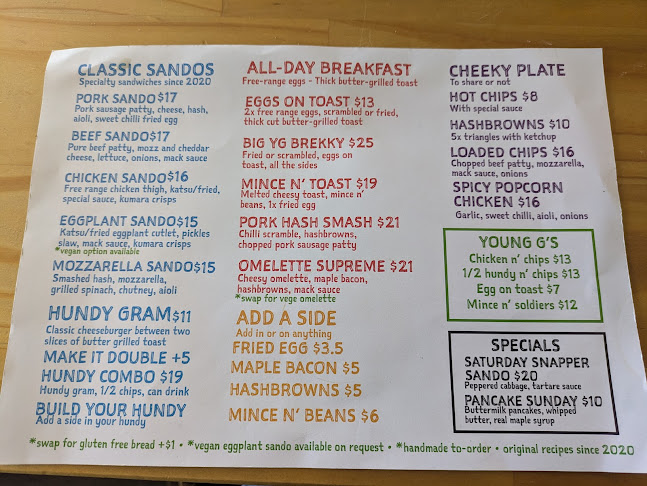 CLASSIC SANDOS
Specialty sandwiches since 2020
PORK SANDO $17
Pork sausage patty, cheese, hash,
aioli, sweet chilli fried egg
BEEF SANDO $17
Pure beef patty, mozz and cheddar
cheese, lettuce, onions, mack sauce
CHICKEN SANDO $16
Free range chicken thigh, katsu/fried,
special sauce, kumara crisps
EGGPLANT SANDO $15
Katsu/fried eggplant cutlet, pickles
slaw, mack sauce, kumara crisps
*vegan option available
MOZZARELLA SANDO $15
Smashed hash, mozzarella,
grilled spinach, chutney, aioli
HUNDY GRAM $11
Classic cheeseburger between two
slices of butter grilled toast
MAKE IT DOUBLE +5
HUNDY COMBO $19
Hundy gram, 1/2 chips, can drink
BUILD YOUR HUNDY
Add a side in your hundy
ALL-DAY BREAKFAST
Free-range eggs - Thick butter-grilled toast
EGGS ON TOAST $13
2x free range eggs, scrambled or fried,
thick cut butter-grilled toast
BIG YG BREKKY $25
Fried or scrambled, eggs on
toast, all the sides
MINCE N' TOAST $19
Melted cheesy toast, mince n'
beans, 1x fried egg
PORK HASH SMASH $21
Chilli scramble, hashbrowns,
chopped pork sausage patty
OMELETTE SUPREME $21
Cheesy omelette, maple bacon,
hashbrowns, mack sauce
*swap for vege omelette
ADD A SIDE
Add in or on anything
FRIED EGG $3.5
MAPLE BACON $5
HASHBROWNS $5
MINCE N' BEANS $6
CHEEKY PLATE
To share or not
HOT CHIPS $8
With special sauce
HASHBROWNS $10
5x triangles with ketchup
LOADED CHIPS $16
Chopped beef patty, mozzarella,
mack sauce, onions
SPICY POPCORN
CHICKEN $16
Garlic, sweet chilli, aioli, onions
YOUNG G'S
Chicken n' chips $13
1/2 hundy n' chips $13
Egg on toast $7
Mince n' soldiers $12
SPECIALS
SATURDAY SNAPPER
SANDO $20
Peppered cabbage, tartare sauce
PANCAKE SUNDAY $10
Buttermilk pancakes, whipped
butter, real maple syrup
*swap for gluten free bread +$1 • *vegan eggplant sando available on request • *handmade to-order • original recipes since 2020